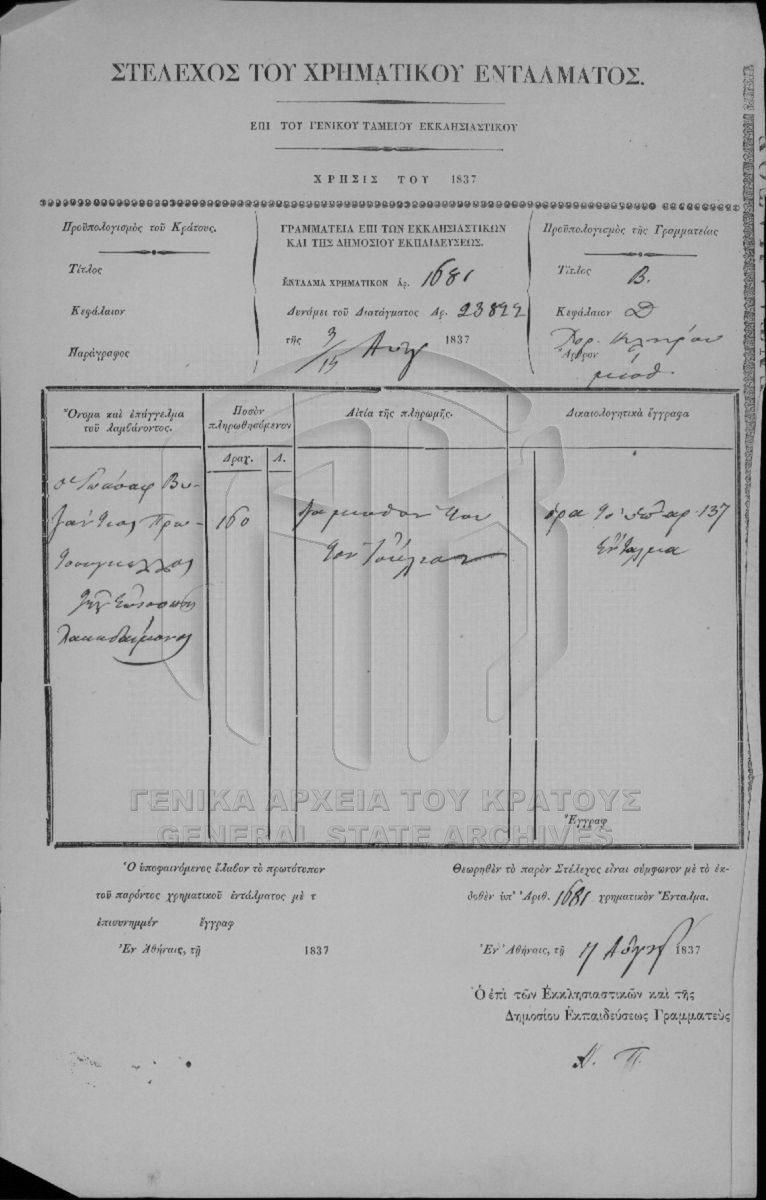 ΣΤΕΛΕΧΟΣ ΤΟΥ ΧΡΗΜΑΤΙΚΟΥ ΕΝΤΑΛΜΑΤΟΣ.
ΕΠΙ ΤΟΥ ΓΕΝΙΚΟΥ ΤΑΜΕΙΟΥ ΕΚΚΛΗΣΙΑΣΤΙΚΟΥ
ΧΡΗΣΙΣ ΤΟΥ 1837
Προϋπολογισμὸς τοῦ Κράτους.
Τίτλος
Κεφάλαιον
Παράγραφος
ΓΡΑΜΜΑΤΕΙΑ ΕΠΙ ΤΩΝ ΕΚΚΛΗΣΙΑΣΤΙΚΩΝ
ΚΑΙ ΤΗΣ ΔΗΜΟΣΙΟΥ ΕΚΠΑΙΔΕΥΣΕΩΣ.
ΕΝΤΑΛΜΑ ΧΡΗΜΑΤΙΚΟΝ Ἀρ. 1681
Δυνάμει τοῦ Διατάγματος Ἀρ. 23822
τῆς 3/15 Αυγ 1837
Προϋπολογισμὸς τῆς Γραμματείας
Τίτλος Β.
Κεφάλαιον Δ
Ἄρθρον
μισθ.
Ὄνομα καὶ ἐπάγγελμα
τοῦ λαμβάνοντος.
Ποσὸν
πληρωθησόμενον
Δραχ. Λ.
Αἰτία τῆς πληρωμῆς.
Δικαιολογητικὰ ἔγγραφα
Βυ-
ζάντιος Πρω-
τοσύγκελλος
Λακεδαίμονος
160
μισθόν του
τον Ἰούλιον
ὅρα τὸ ἀρ. 137
ἔνταλμα
Ἔγγραφ
ΓΕΝΙΚΑ ΑΡΧΕΙΑ ΤΟΥ ΚΡΑΤΟΥΣ
GENERAL STATE ARCHIVES
Ὁ ὑποφαινόμενος ἔλαβον τὸ πρωτότυπον
τοῦ παρόντος χρηματικοῦ ἐντάλματος μὲ τ
ἐπισυνημμέν ἔγγραφ
Ἐν Ἀθήναις, τῇ 1837
Θεωρηθὲν τὸ παρὸν Στέλεχος εἶναι σύμφωνον μὲ τὸ ἐκ-
δοθὲν ὑπ' Ἀριθ. 1681 χρηματικὸν Ἔνταλμα.
Ἐν Ἀθήναις, τῇ 17 Αὐγ 1837
Ὁ ἐπὶ τῶν Ἐκκλησιαστικῶν καὶ τῆς
Δημοσίου Ἐκπαιδεύσεως Γραμματεὺς